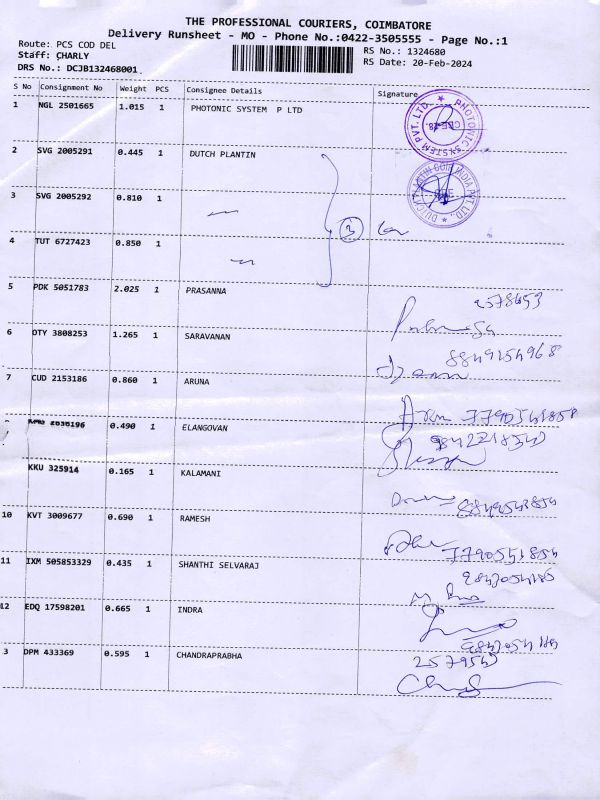 THE PROFESSIONAL COURIERS, COIMBATORE
Delivery Runsheet - MO - Phone No.:0422-3505555 - Page No.:1
Route: PCS COD DEL RS No.: 1324680
Staff: CHARLY RS Date: 20-Feb-2024
DRS No.: DCJB132468001
S No Consignment No Weight PCS Consignee Details Signature
1 NGL 2501665 1.015 1 PHOTONIC SYSTEM P LTD
PHOTONIC SYSTEM PVT. LTD.
2 SVG 2005291 0.445 1 DUTCH PLANTIN
3 SVG 2005292 0.810 1
3
4 TUT 6727423 0.850 1
5 PDK 5051783 2.025 1 PRASANNA
2578653
6 DTY 3808253 1.265 1 SARAVANAN
8849154968
7 CUD 2153186 0.860 1 ARUNA
0.490 1 ELANGOVAN
KKU 325914 0.165 1 KALAMANI
10 KVT 3009677 0.690 1 RAMESH
11 IXM 505853329 0.435 1 SHANTHI SELVARAJ
12 EDQ 17598201 0.665 1 INDRA
3 DPM 433369 0.595 1 CHANDRAPRABHA